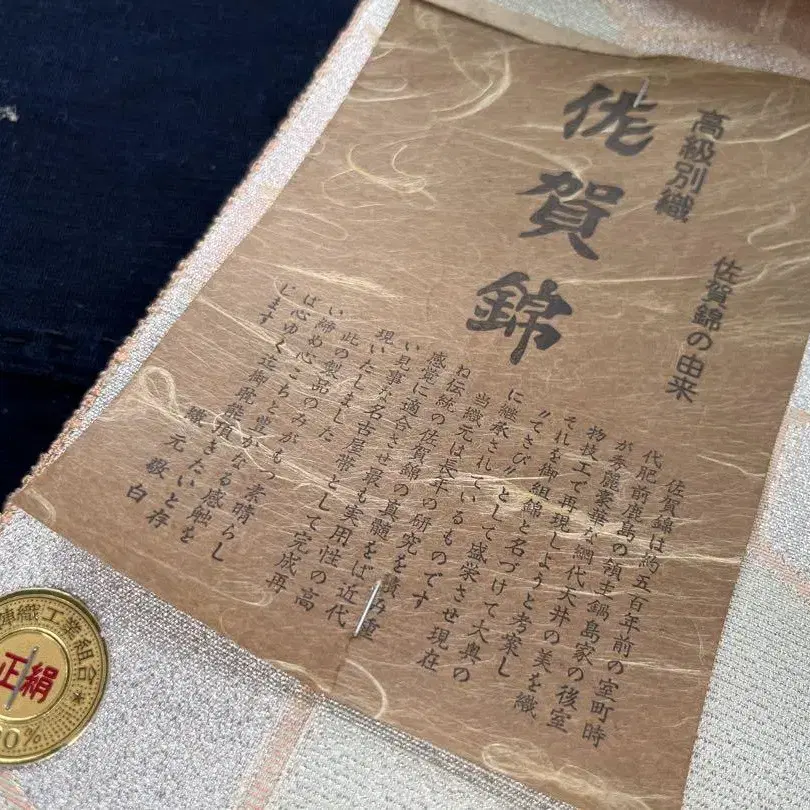 高級別織
佐賀錦
佐賀錦の由来
佐賀錦は約五百年前の室町時
代肥前鹿島の領主鍋島家の後室
が秀麗豪華な網代天井の美を織
物技工で再現しようと考案し
それを御組錦と名づけて大典の
〃てさび〃として盛栄させ現在
に継承されているものです
当織元は長年の研究を積み重
ね伝統の佐賀錦の真髄をば近代
感覚に適合させ最も実用性の高
い見事な名古屋帯として完成再
現いたしました
此の製品のもつ素晴らし
い締め心ごみが豊かなる感触を
ば心ゆく迄御玩能頂きたいと存
じます
織元敬白
陣織工業組合
正絹
0%